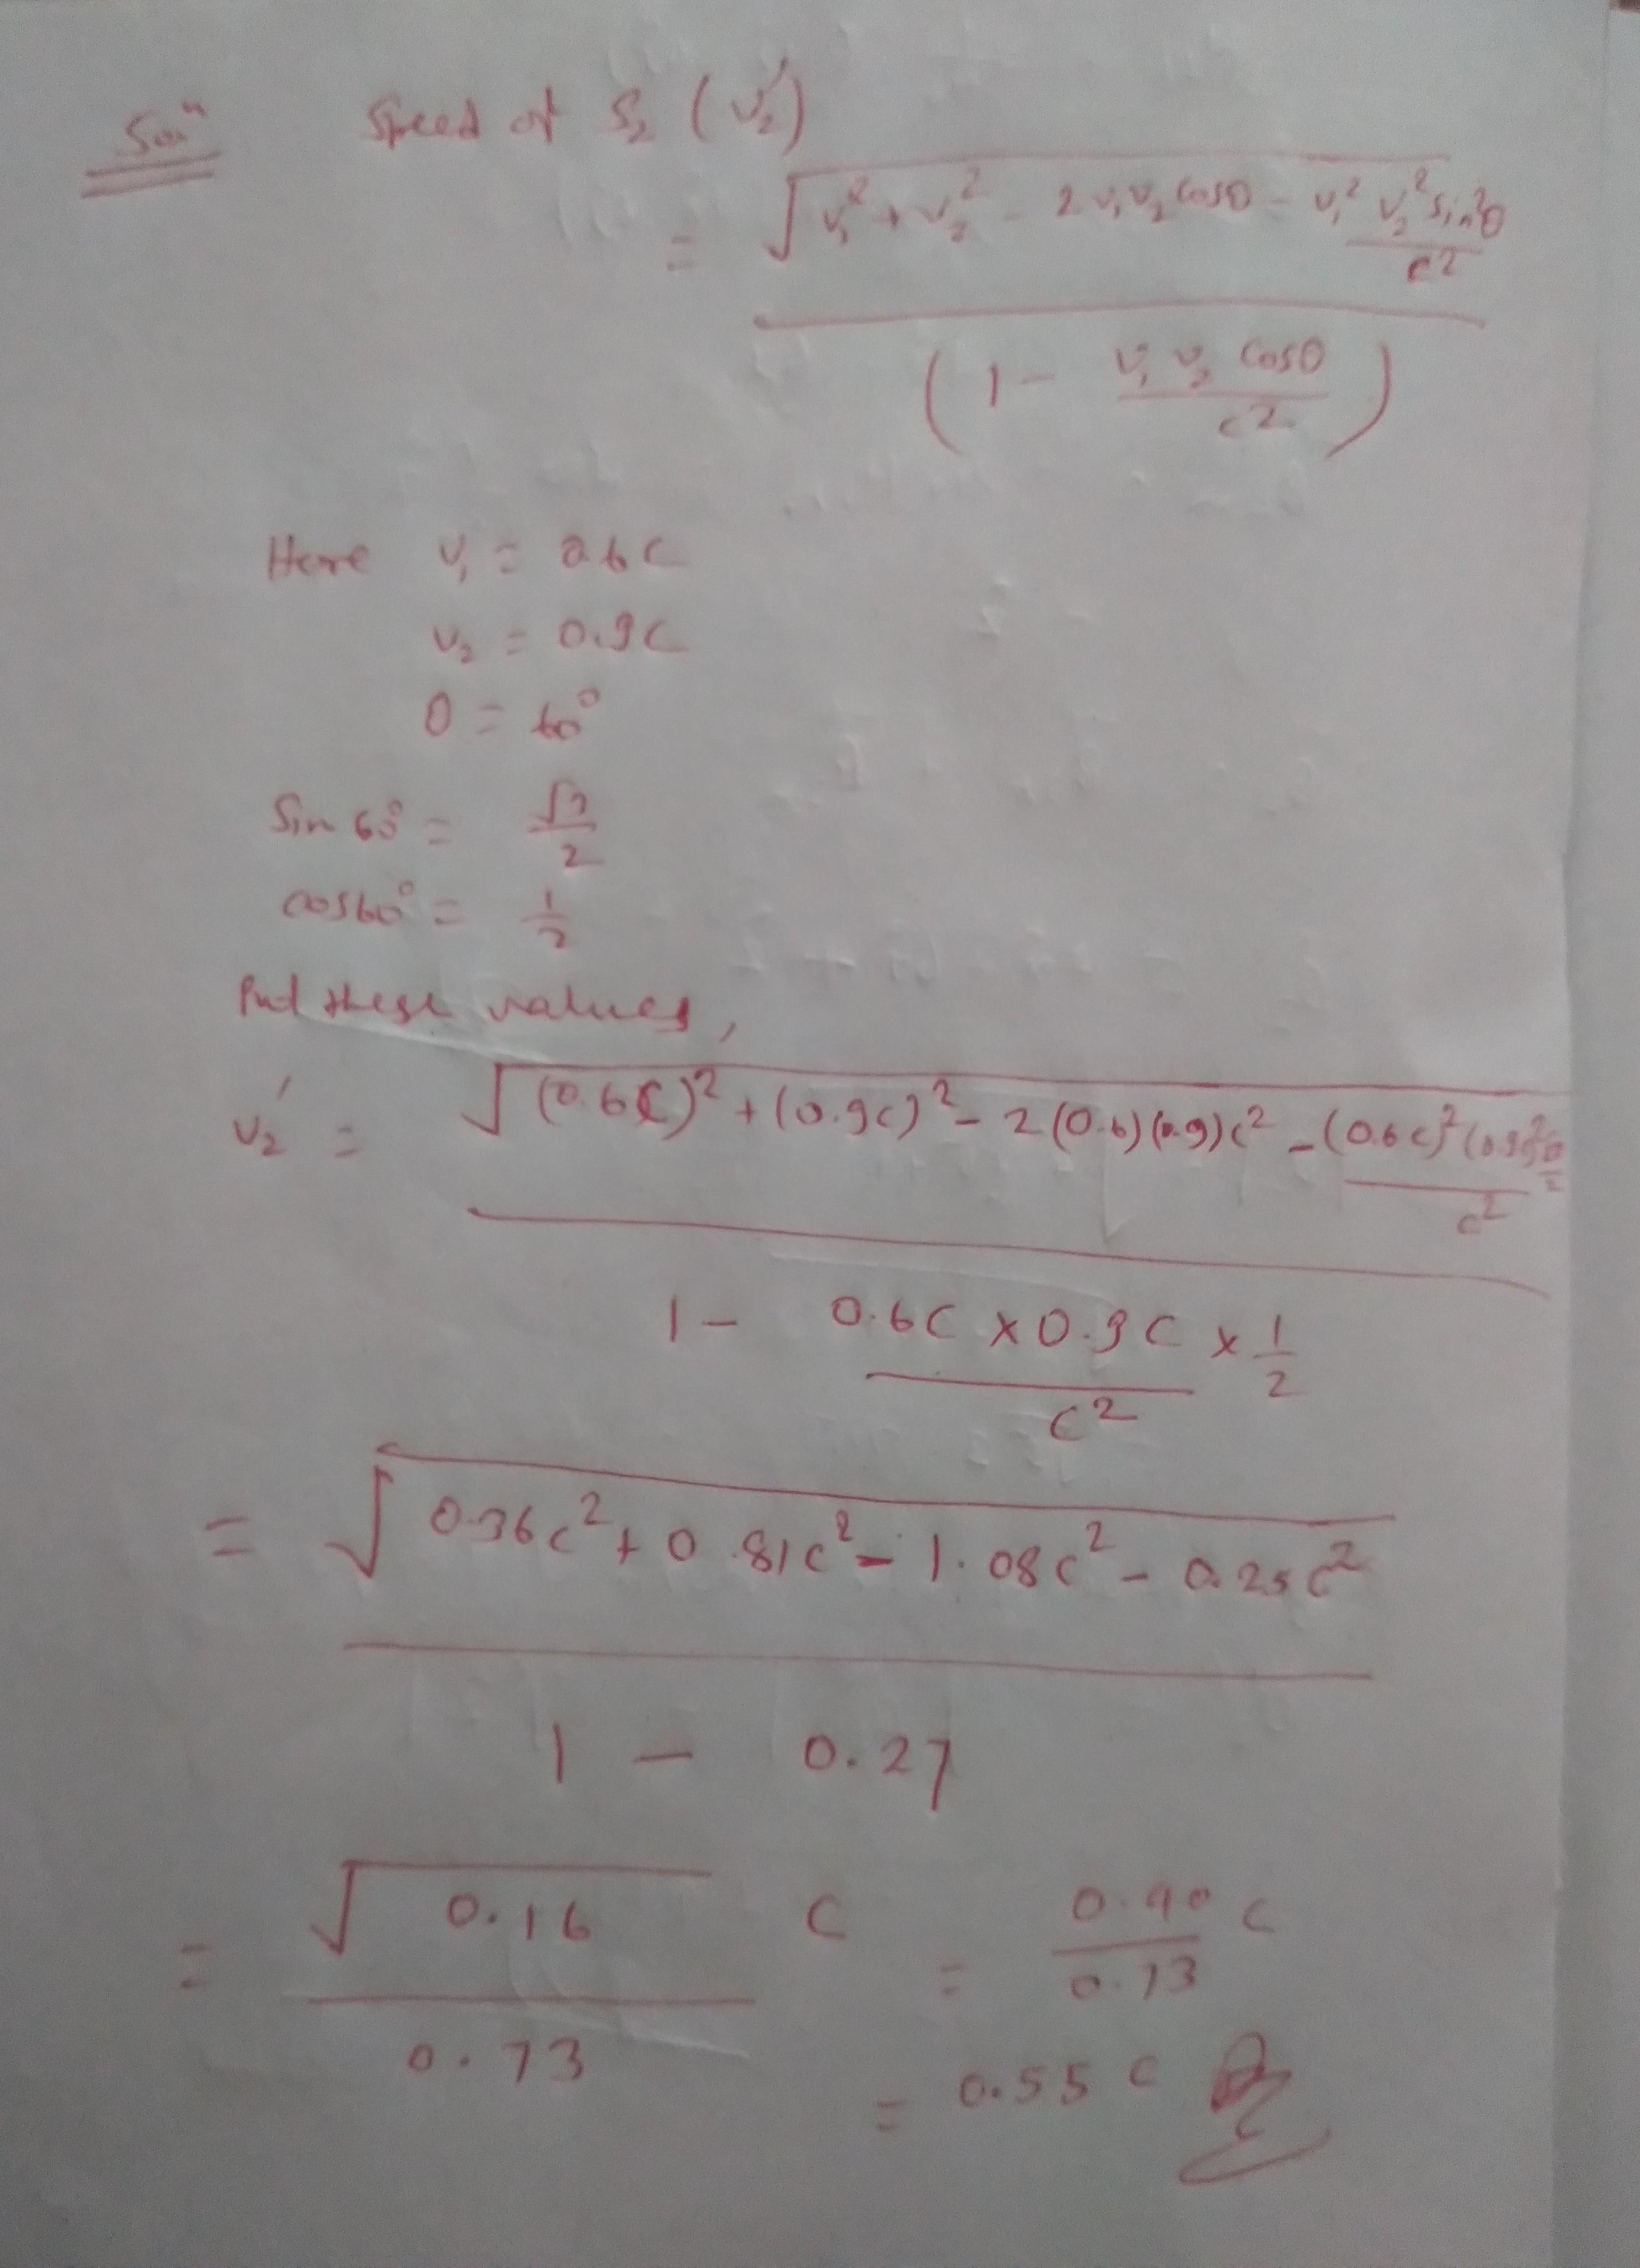 Soln Speed of S₂ (v₂')
= √(v₁² + v₂² - 2v₁v₂ cosθ - v₁² v₂² sin²θ / c²)
(1 - v₁ v₂ cosθ / c²)
Here v₁ = 0.6C
v₂ = 0.9C
θ = 60°
Sin 60° = √3/2
cos60° = 1/2
Put these values,
v₂' = √((0.6C)² + (0.9C)² - 2(0.6)(0.9)c² - (0.6c)² (0.9)² / c²)
1 - 0.6C × 0.9C / c² × 1/2
= √(0.36c² + 0.81c² - 1.08c² - 0.25c²)
1 - 0.27
= √0.16 C / 0.73 = 0.40 C / 0.73
= 0.55 C